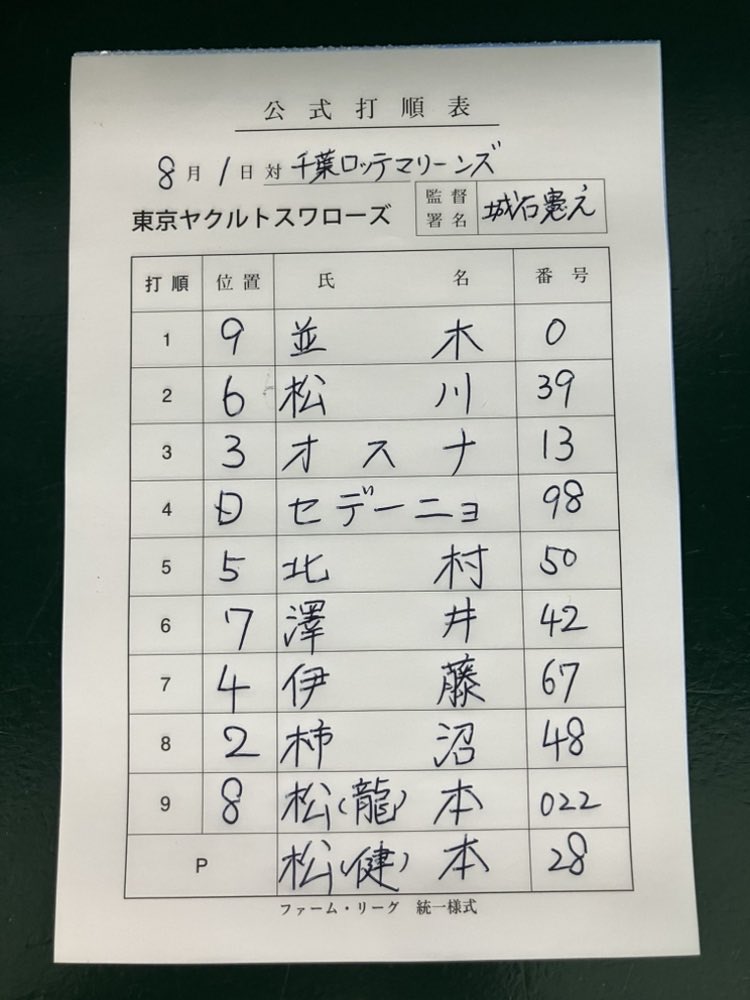 公式打順表
8月1日対千葉ロッテマリーンズ
東京ヤクルトスワローズ 監督署名 城石憲之
打順 位置 氏名 番号
1 9 並木 0
2 6 松川 39
3 3 オスナ 13
4 D セデーニョ 98
5 5 北村 50
6 7 澤井 42
7 4 伊藤 67
8 2 柿沼 48
9 8 松(龍)本 022
P 松(健)本 28
ファーム・リーグ 統一様式